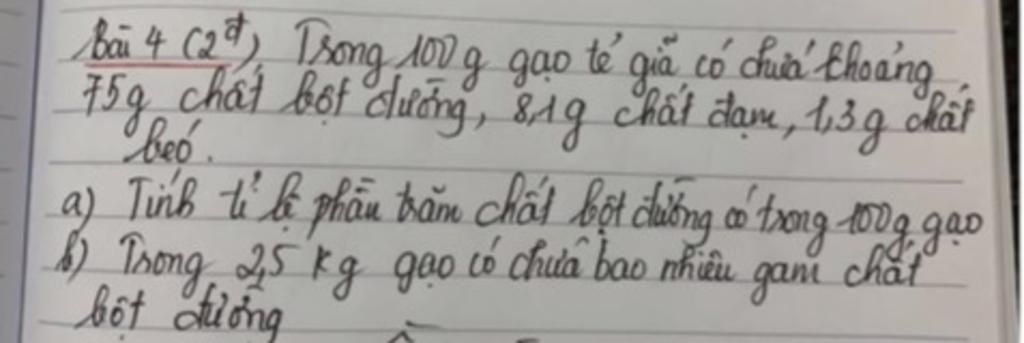 Bài 4 (2đ) Trong 100g gạo tẻ giã có chứa khoảng
75g chất bột đường, 8,1g chất đạm, 1,3g chất
béo.
a) Tính tỉ lệ phần trăm chất bột đường có trong 100g gạo
b) Trong 2,5 kg gạo có chứa bao nhiêu gam chất
bột đường